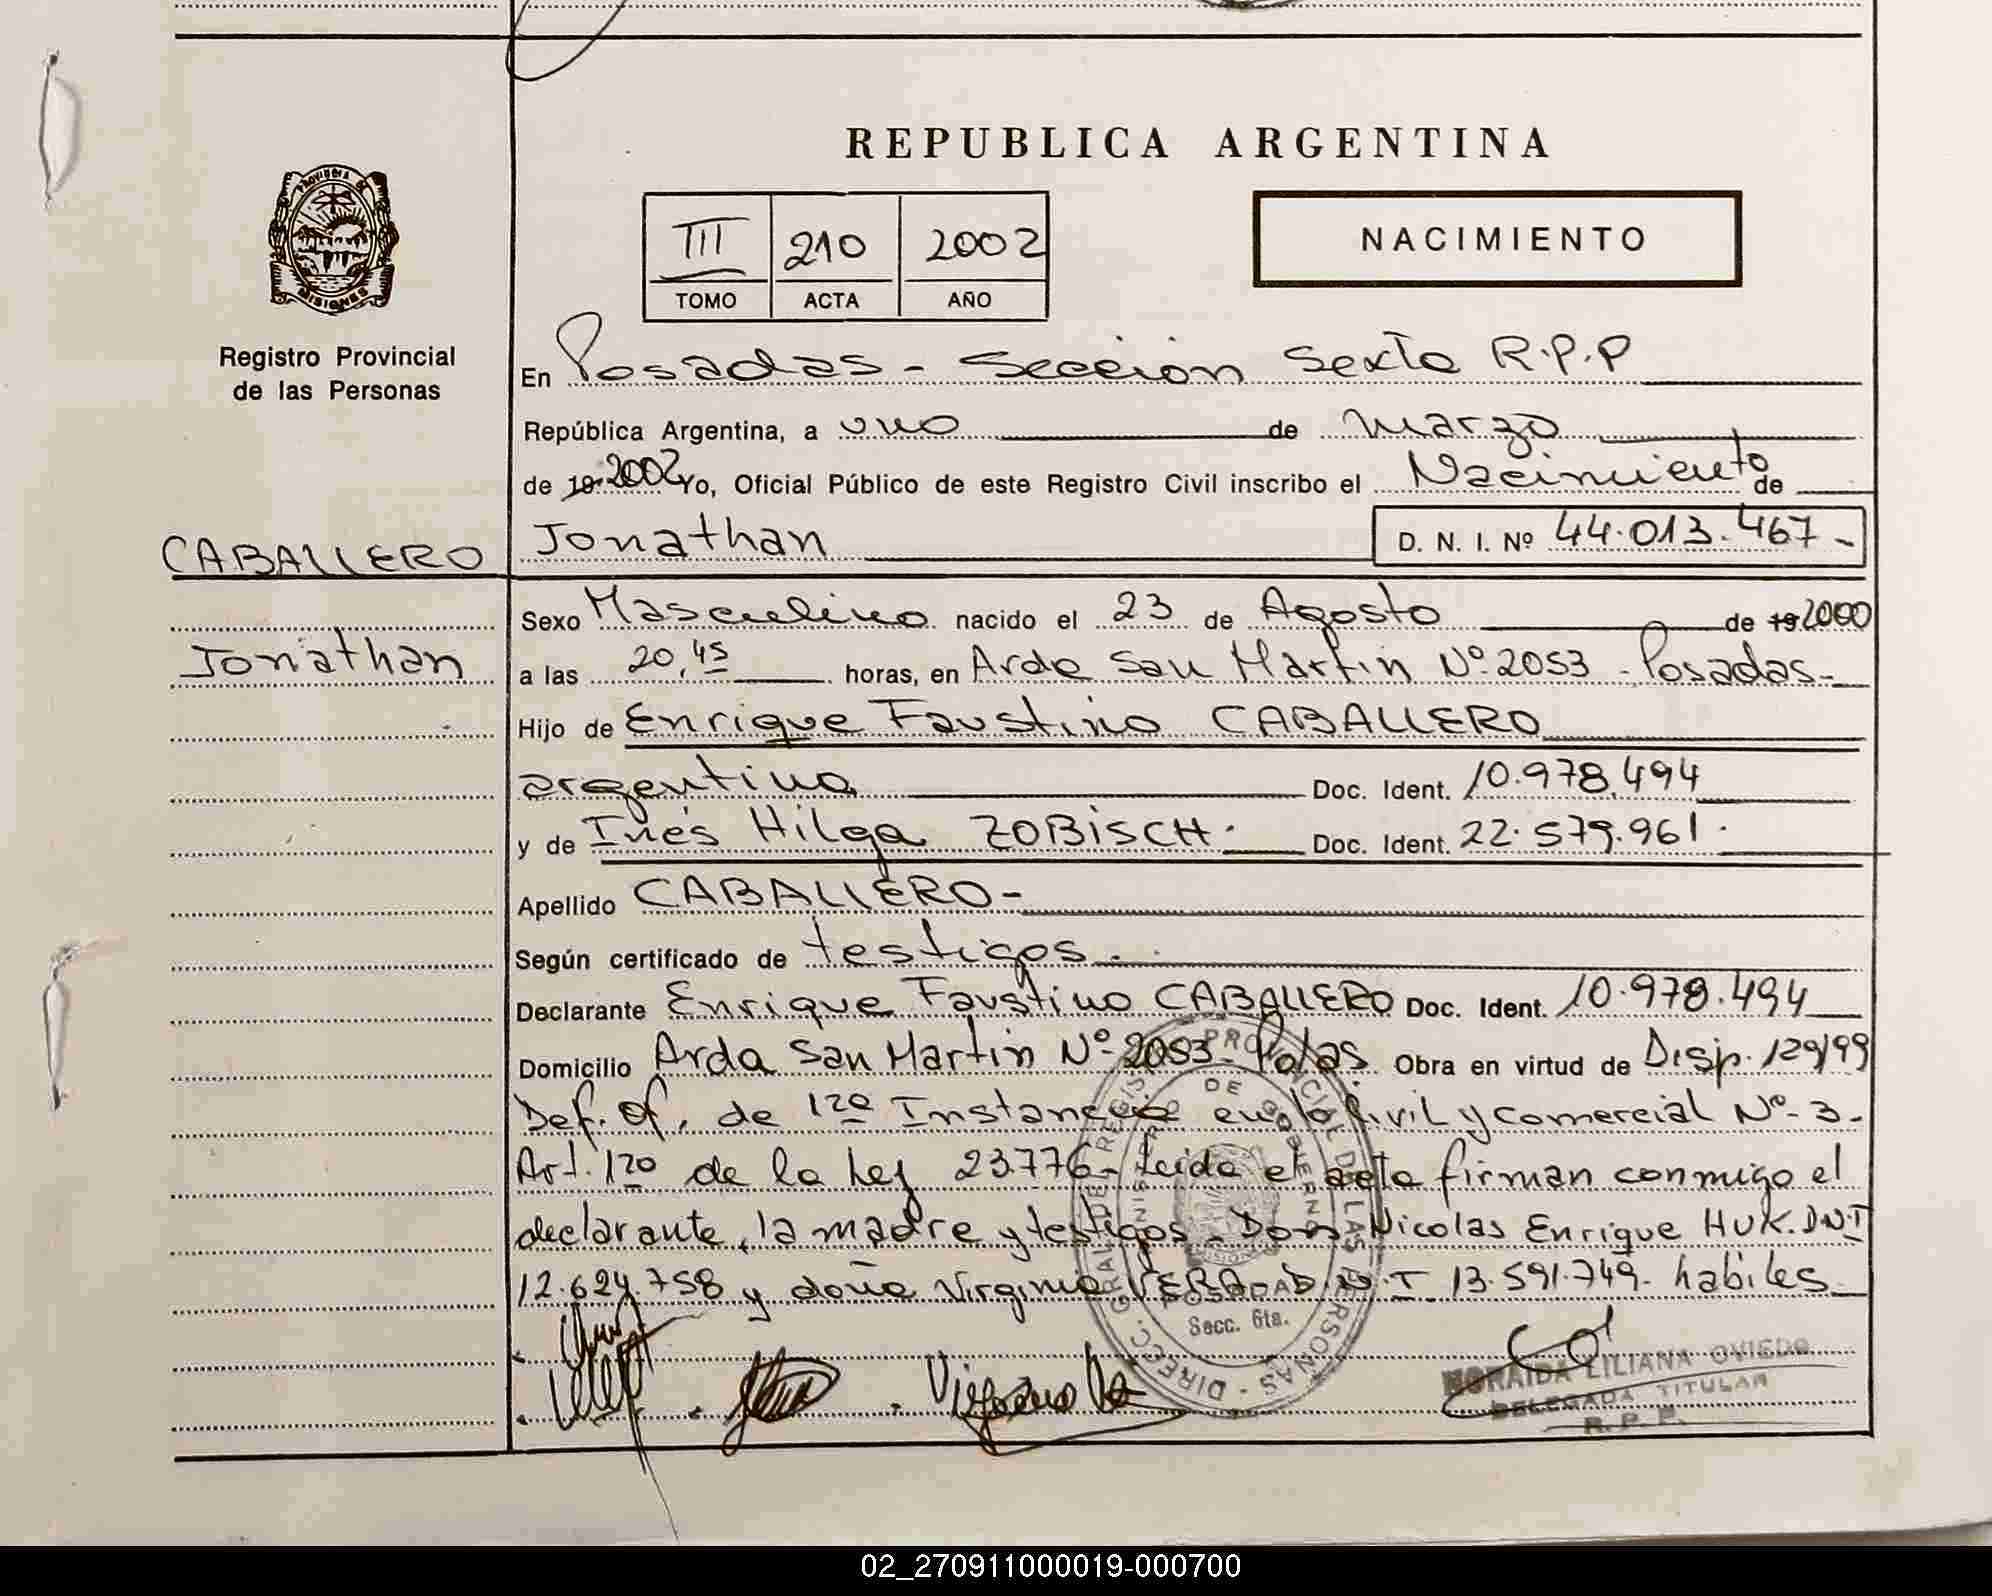 REPUBLICA ARGENTINA
PROVINCIA DE
MISIONES
III 210 2002
TOMO ACTA AÑO
NACIMIENTO
Registro Provincial
de las Personas
En Posadas - Sección Sexta R.P.P
República Argentina, a uno de Marzo
de 19 2002 Yo, Oficial Público de este Registro Civil inscribo el Nacimiento de
CABALLERO
Jonathan D. N. I. Nº 44.013.467-
Jonathan
Sexo Masculino nacido el 23 de Agosto de 19 2000
a las 20,45 horas, en Avda San Martin Nº 2053 - Posadas-
Hijo de Enrique Faustino CABALLERO
argentino Doc. Ident. 10.978.494
y de Inés Hilga ZOBISCH. Doc. Ident. 22.579.961.
Apellido CABALLERO-
Según certificado de testigos.
Declarante Enrique Faustino CABALLERO Doc. Ident. 10.978.494
Domicilio Avda San Martin Nº 2053- Pdas. Obra en virtud de Disp. 129/99
Def. Of. de 1ra Instancia en lo Civil y Comercial Nº 3-
Art. 1ro de la Ley 23.776- Leida el acta firman conmigo el
declarante, la madre y testigos. Don Nicolas Enrique HUK. D.N.I
12.624.758 y doña Virginia VERA- D.N.I 13.591.749- habiles-
DIREC. GRAL DEL REGISTRO PROVINCIAL DE LAS PERSONAS
MINISTERIO DE GOBIERNO
MISIONES
POSADAS
Secc. 6ta.
NORAIDA LILIANA OVIEDO
DELEGADA TITULAR
R. P. P.
02_270911000019-000700